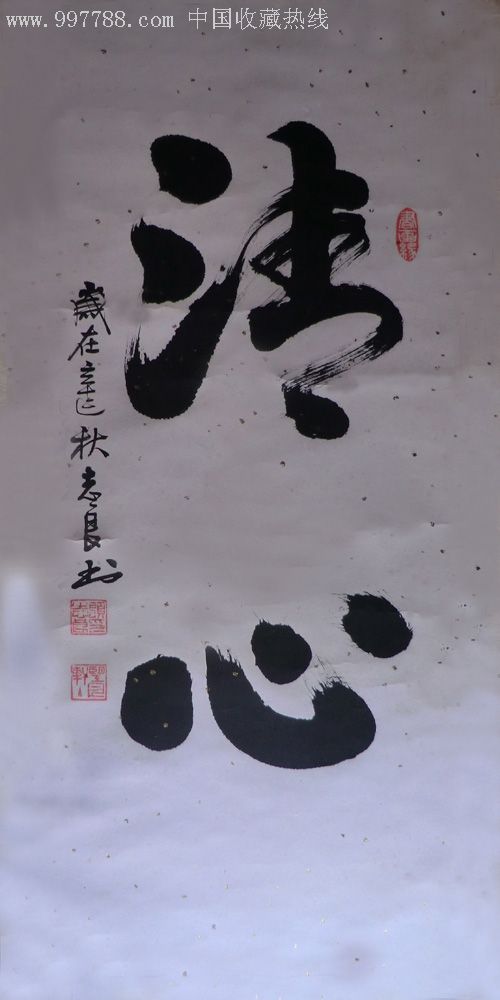 www.997788.com 中国收藏热线
清心
歲在辛巳秋志良书